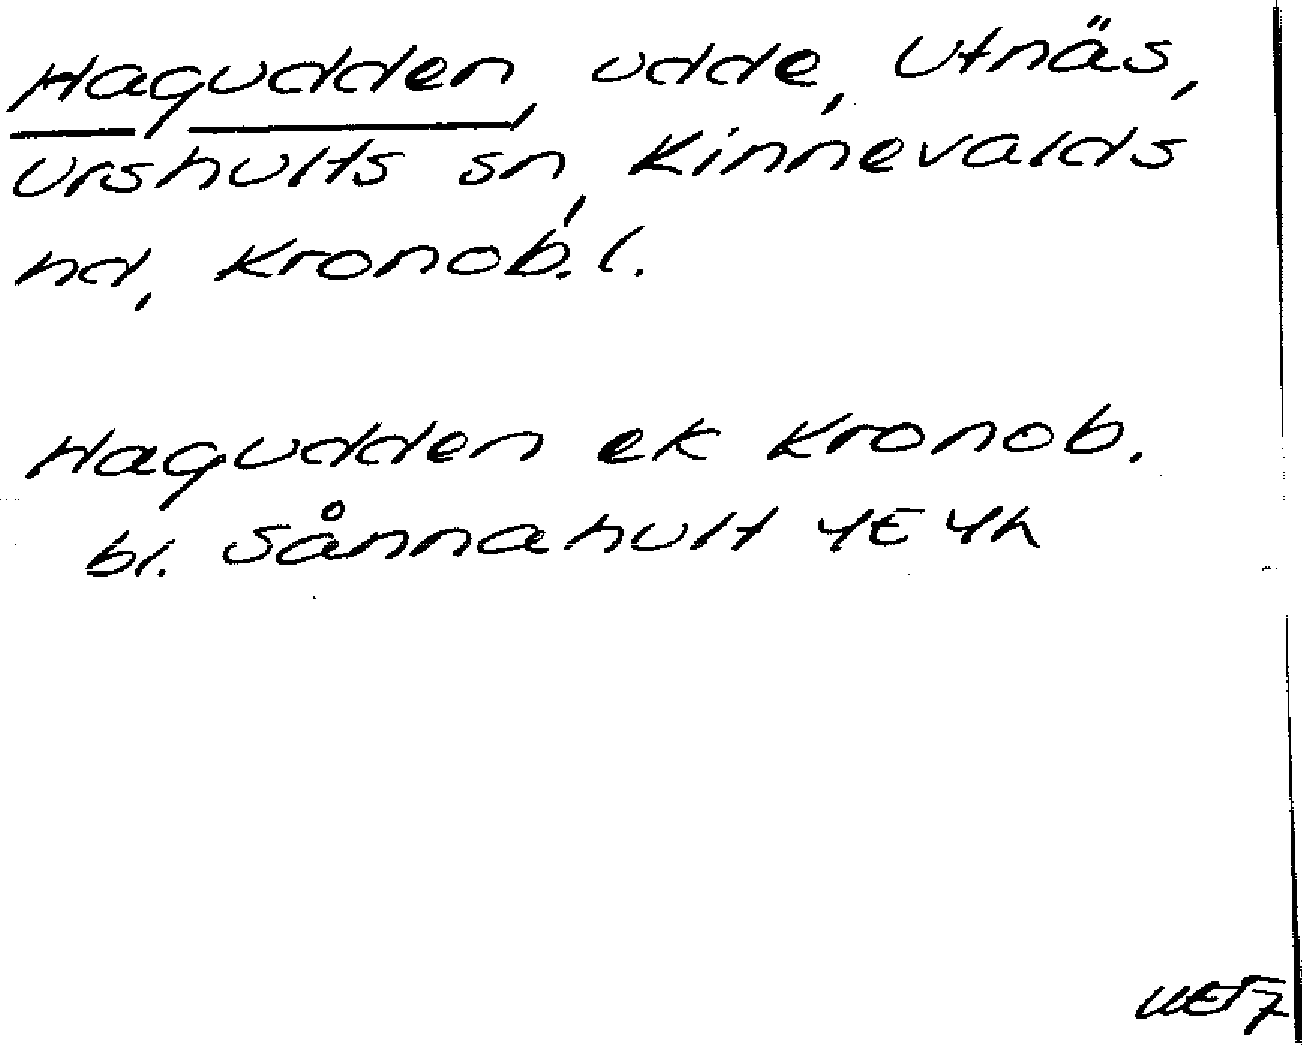 Hagudden, udde, Utnäs,
Urshults sn, Kinnevalds
hd, Kronob. l.
Hagudden ek Kronob.
bl. Sånnahult 4E 4h